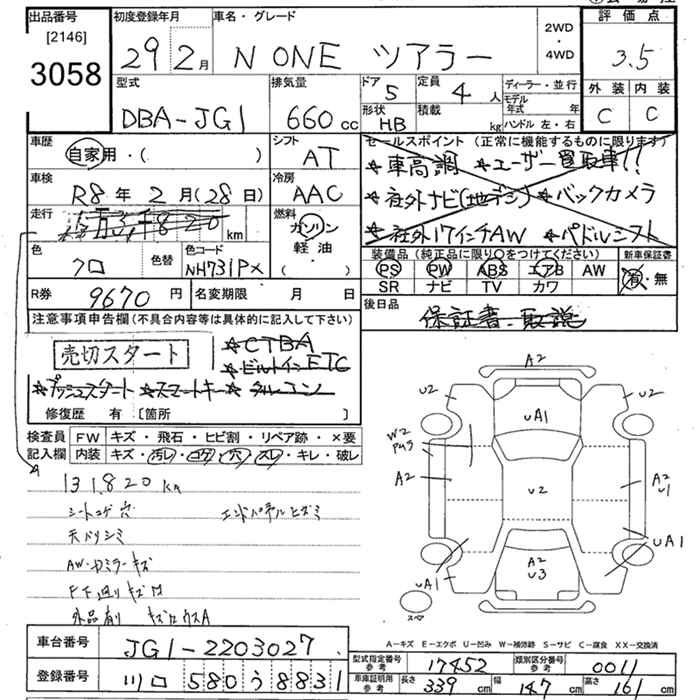 出品番号 初度登録年月 車名・グレード 評価点
[2146] 29年2月 N ONE ツアラー 2WD・4WD 3.5
3058
型式 排気量 ドア 5 定員 4人 ディーラー・並行 外装 内装
DBA-JG1 660cc 形状 HB 積載 kg モデル年式 年 ハンドル 左・右 C C
車歴 シフト セールスポイント(正常に機能するものに限ります)
自家用・( ) AT ★車高調 ★ユーザー買取車!!
車検 冷房 ★社外ナビ(地デジ) ★バックカメラ
R8年2月(28日) AAC ★社外17インチAW ★パドルシフト
走行 km 燃料 ガソリン・軽油・( )
色 色替 色コード 装備品(純正品に限り○をつけてください) 新車保証書
クロ NH731PX PS PW ABS エアB AW 有・無
SR ナビ TV カワ
R券 9670円 名変期限 月 日 後日品
保証書、取説
注意事項申告欄(不具合内容等は具体的に記入して下さい)
売切スタート ★CTBA
★ビルトインETC
★プッシュスタート ★スマートキー ★クルコン
修復歴 有 [箇所 ]
検査員記入欄 FW キズ・飛石・ヒビ割・リペア跡・×要
内装 キズ・汚レ・コゲ・穴・スレ・キレ・破レ
131,820km
シートコゲ穴 エンドパネルヒズミ
天バリシミ
AW・Dミラーキズ
F下廻りキズM
外品有り
A2
U2 UA1 U2
W2
A2 U2 A2
U1
UA1 A2 UA1
U3
スペア
A-キズ E-エクボ U-凹み W-補修跡 S-サビ C-腐食 XX-交換済
車台番号 JG1-2203027
型式指定番号 参考 17452 類別区分番号 参考 0011
登録番号 川口 580 う 8831
車庫証明用 参考 長さ 339cm 幅 147cm 高さ 161cm